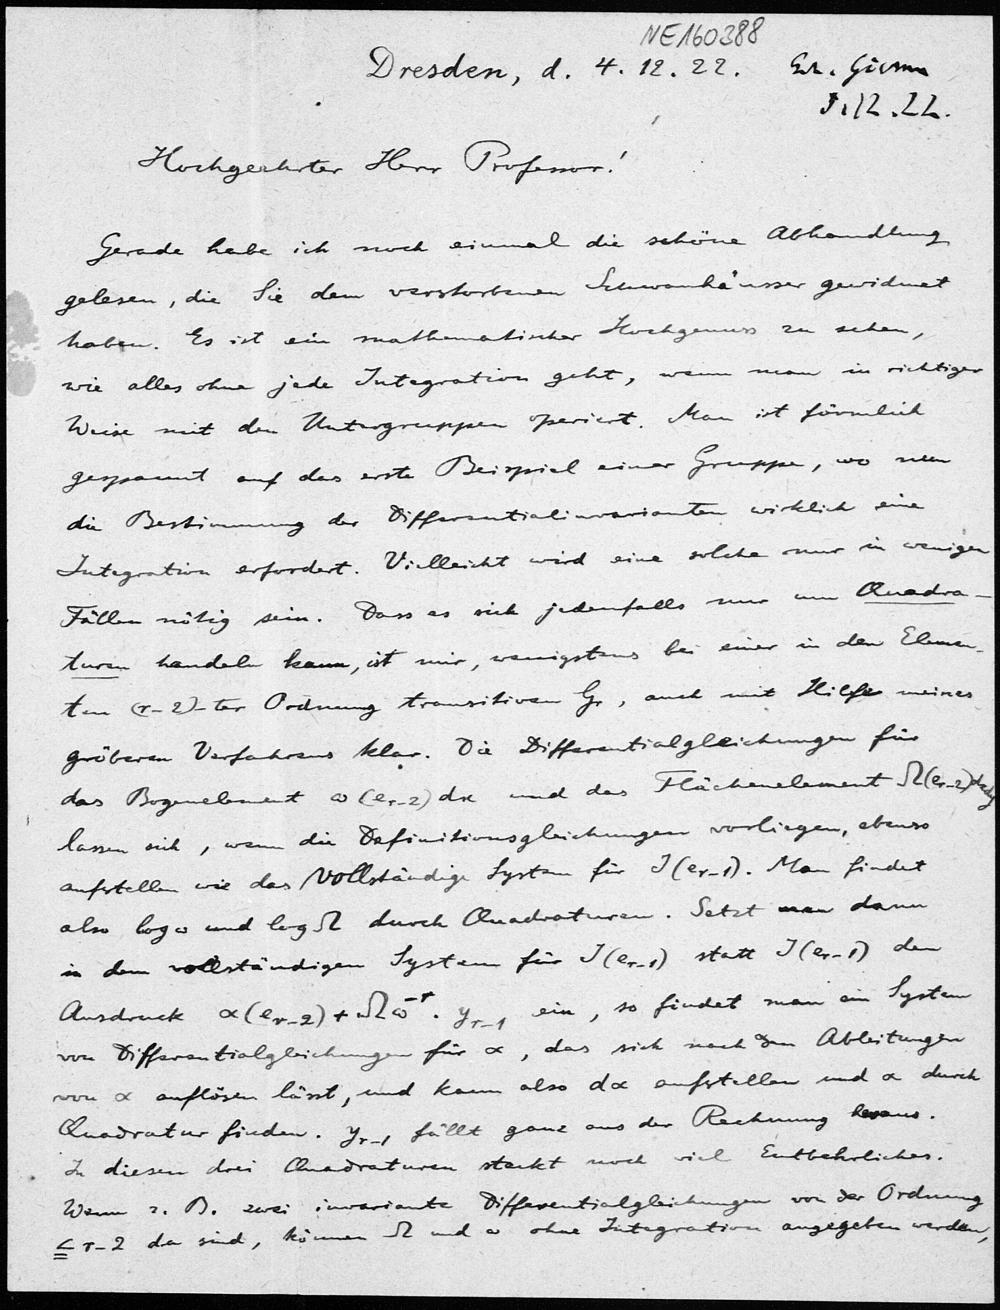 NE160388
Dresden, d. 4.12.22.
5.12.22.
Hochgeehrter Herr Professor!
Gerade habe ich noch einmal die schöne Abhandlung
gelesen, die Sie dem verstorbenen Schwanhäusser gewidmet
haben. Es ist ein mathematischer Hochgenuss zu sehen,
wie alles ohne jede Integration geht, wenn man in richtiger
Weise mit den Untergruppen operiert. Man ist förmlich
gespannt auf das erste Beispiel einer Gruppe, wo nun
die Bestimmung der Differentialinvarianten wirklich eine
Integration erfordert. Vielleicht wird eine solche nur in wenigen
Fällen nötig sein. Dass es sich jedenfalls nur um Quadra-
turen handeln kann, ist mir, wenigstens bei einer in den Elemen-
ten (r-2)-ter Ordnung transitiven Gr, auch mit Hilfe meines
gröberen Verfahrens klar. Die Differentialgleichungen für
das Bogenelement ω(e_{r-2})dx und das Flächenelement Ω(e_{r-2})dxdy
lassen sich, wenn die Definitionsgleichungen vorliegen, ebenso
aufstellen wie das vollständige System für J(e_{r-1}). Man findet
also log ω und log Ω durch Quadraturen. Setzt man dann
in dem vollständigen System für J(e_{r-1}) statt J(e_{r-1}) den
Ausdruck α(e_{r-2}) + Ωω^{-r}. y_{r-1} ein, so findet man ein System
von Differentialgleichungen für α, das sich nach den Ableitungen
von α auflösen lässt, und kann also dα aufstellen und α durch
Quadratur finden. y_{r-1} fällt ganz aus der Rechnung heraus.
In diesen drei Quadraturen steckt noch viel Entbehrliches.
Wenn z. B. zwei invariante Differentialgleichungen von der Ordnung
≦ r-2 da sind, können Ω und ω ohne Integration angegeben werden,